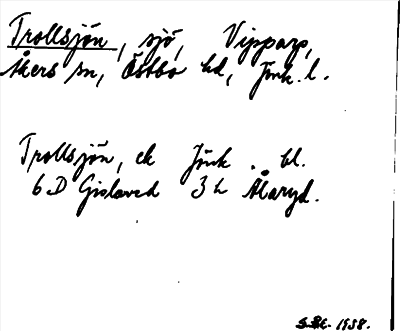 Trollsjön, sjö, Vipparp,
Åkers sn, Östbo hd, Jönk. l.
Trollsjön, ek Jönk. bl.
6D Gislaved 3 h Ålaryd.
1938.